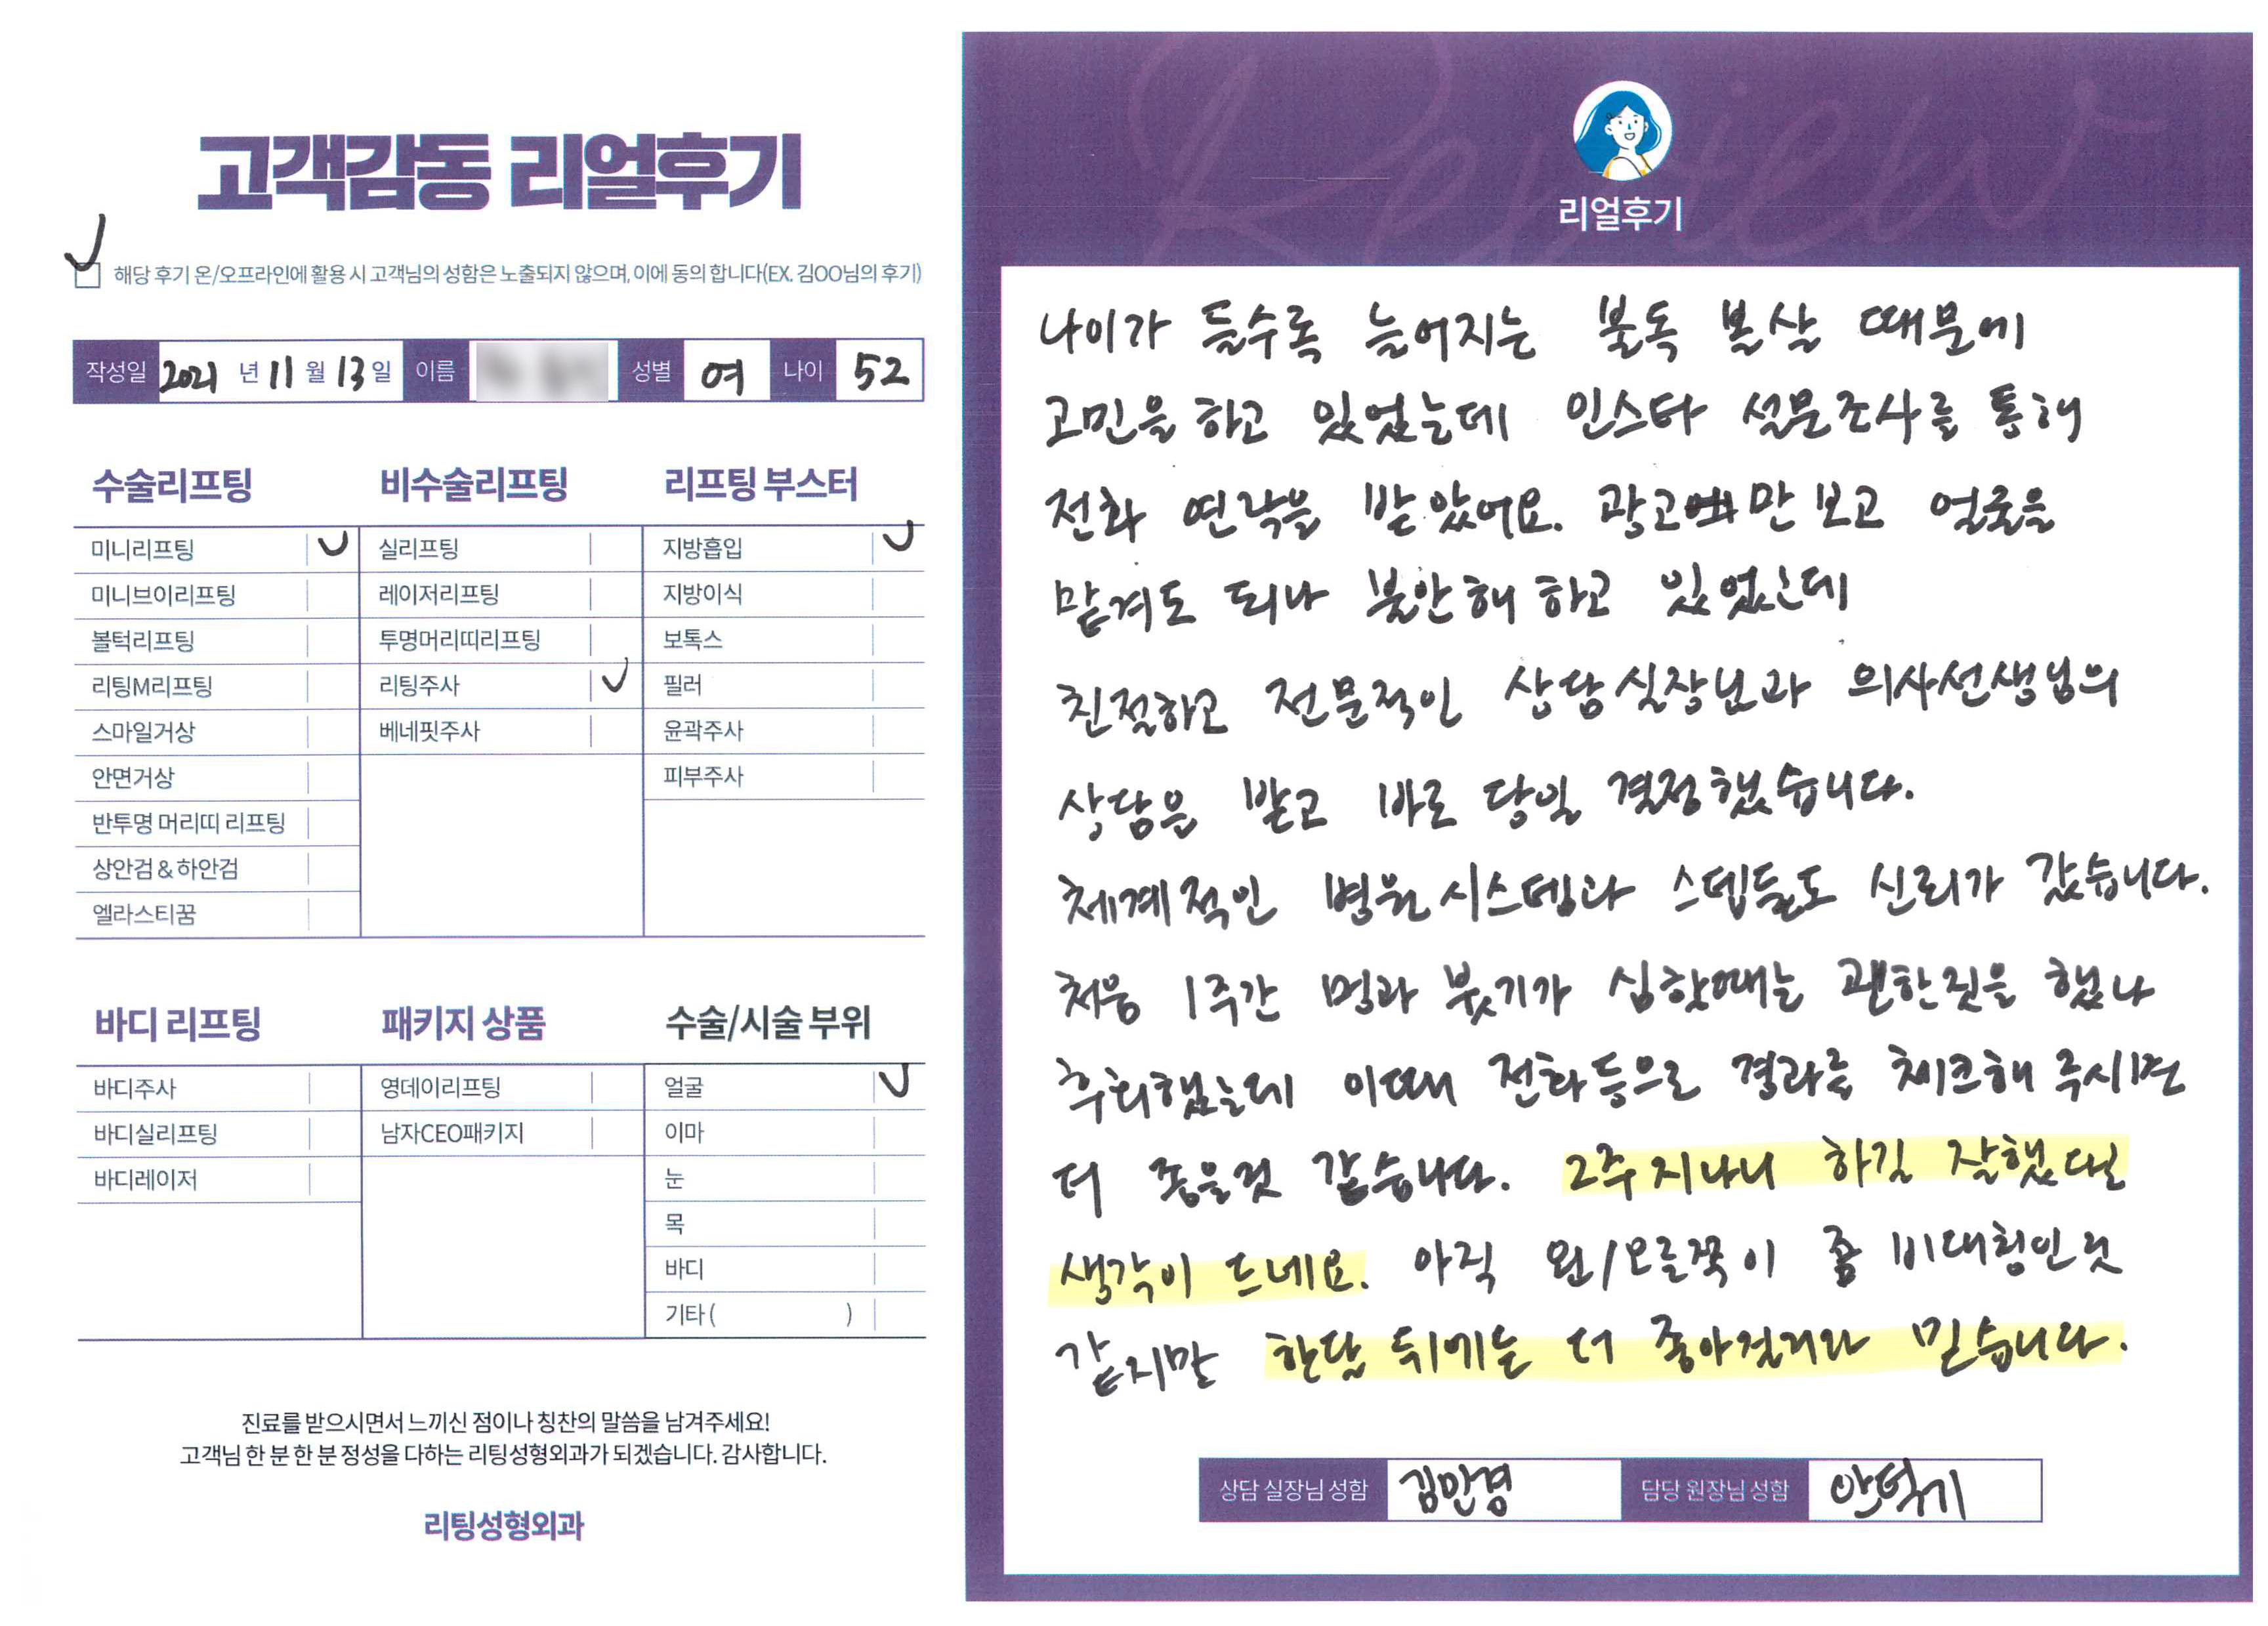 고객감동 리얼후기
해당 후기 온/오프라인에 활용 시 고객님의 성함은 노출되지 않으며, 이에 동의 합니다(EX. 김OO님의 후기)
작성일 2021 년 11 월 13 일 이름 성별 여 나이 52
수술리프팅
미니리프팅
미니브이리프팅
볼턱리프팅
리팅M리프팅
스마일거상
안면거상
반투명 머리띠 리프팅
상안검 & 하안검
엘라스티꿈
비수술리프팅
실리프팅
레이저리프팅
투명머리띠리프팅
리팅주사
베네핏주사
리프팅 부스터
지방흡입
지방이식
보톡스
필러
윤곽주사
피부주사
바디 리프팅
바디주사
바디실리프팅
바디레이저
패키지 상품
영데이리프팅
남자CEO패키지
수술/시술 부위
얼굴
이마
눈
목
바디
기타 ( )
진료를 받으시면서 느끼신 점이나 칭찬의 말씀을 남겨주세요!
고객님 한 분 한 분 정성을 다하는 리팅성형외과가 되겠습니다. 감사합니다.
리팅성형외과
Review
리얼후기
나이가 들수록 늘어지는 불독 볼살 때문에
고민을 하고 있었는데 인스타 설문조사를 통해
전화 연락을 받았어요. 광고만 보고 얼굴을
맡겨도 되나 불안해 하고 있었는데
친절하고 전문적인 상담실장님과 의사선생님의
상담을 받고 바로 당일 결정했습니다.
체계적인 병원시스템과 스텝들도 신뢰가 갔습니다.
처음 1주간 멍과 붓기가 심할때는 괜한짓을 했나
후회했는데 이때 전화등으로 경과를 체크해 주시면
더 좋을것 같습니다. 2주 지나니 하길 잘했단
생각이 드네요. 아직 왼/오른쪽이 좀 비대칭인것
같지만 한달 뒤에는 더 좋아질거라 믿습니다.
상담 실장님 성함 김민경 담당 원장님 성함 안덕기